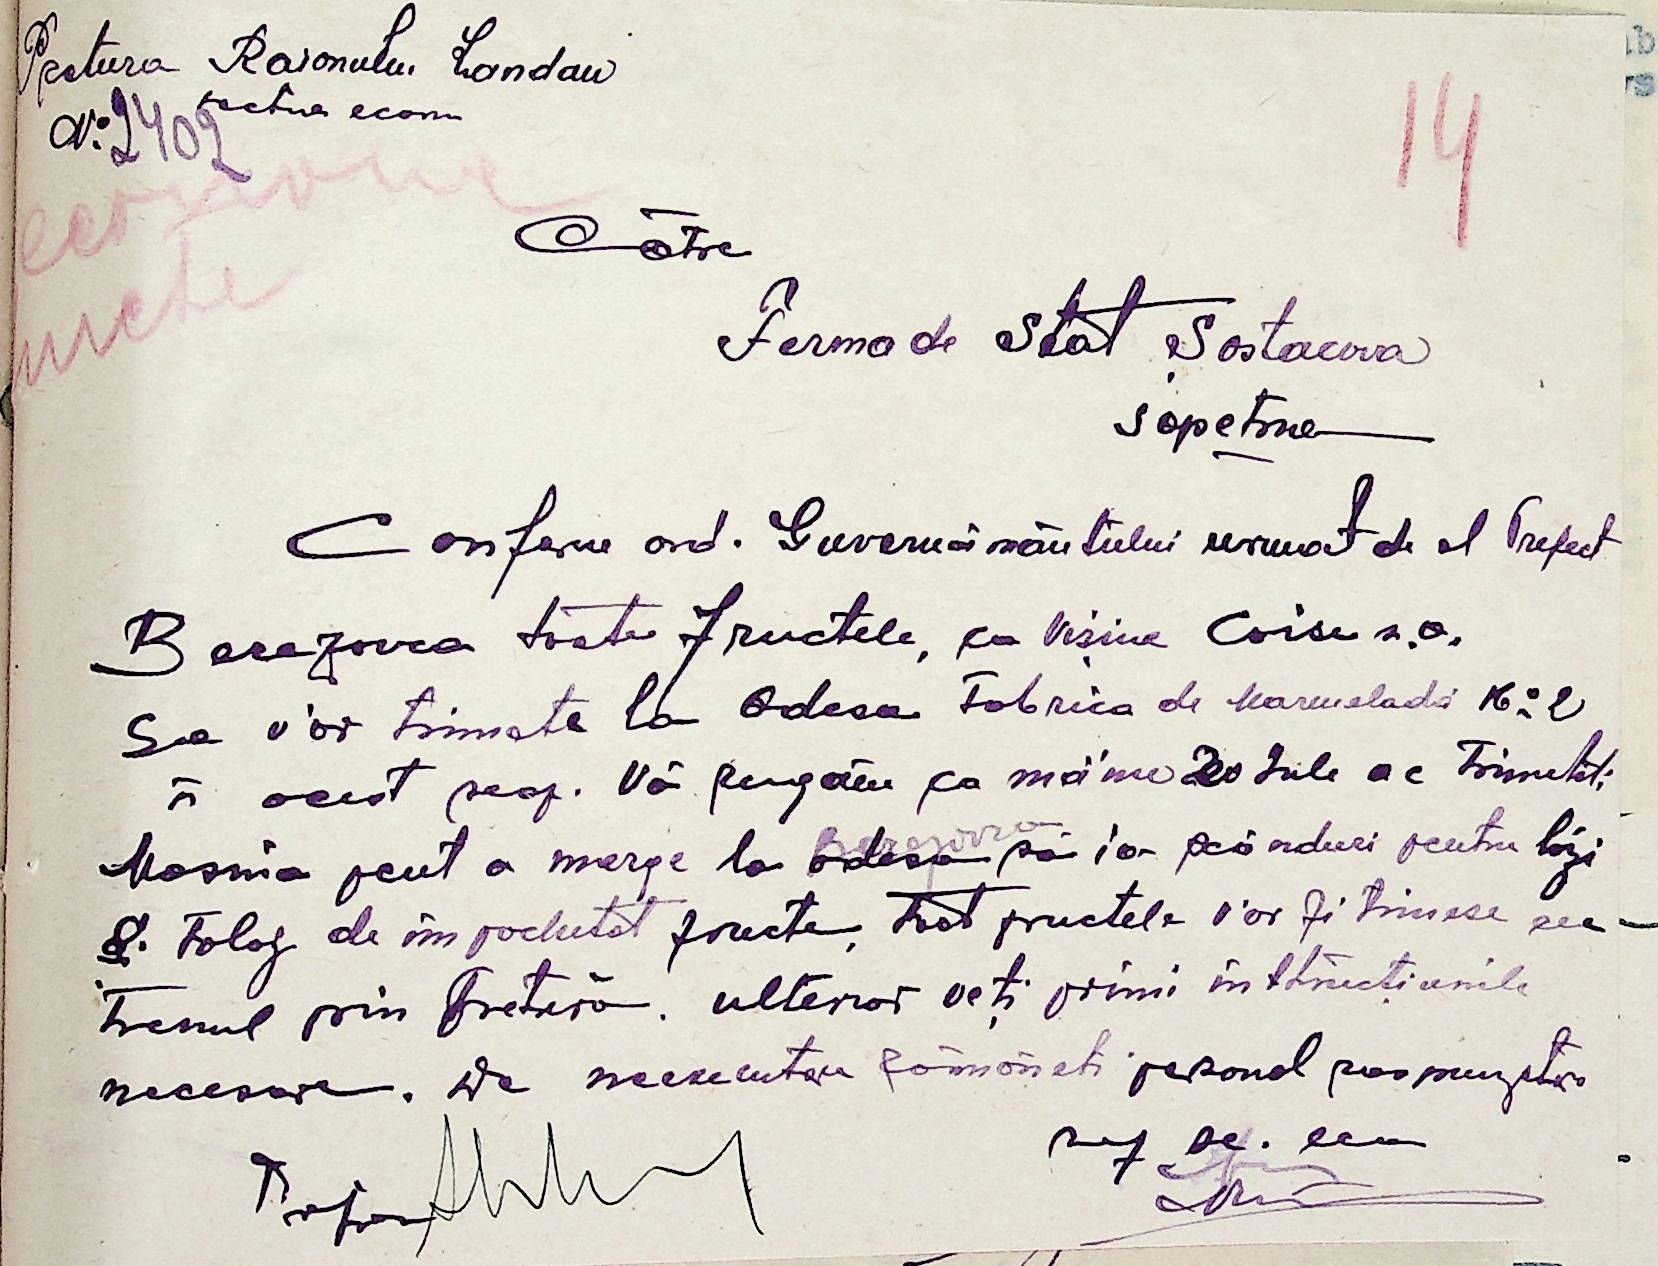 Pretura Raionului Landau
sectia econ
No: 2402
14
economic
fructe
Către
Ferma de Stat Șostacova
Conform ord. Guvernămîntului urmat de al Prefect
Berezovca toate fructele, ca Vișine Caise s.a.
Se v'or trimete la Odesa Fabrica de Marmeladă No: 2
în acest scop. Vă rugăm ca mâine 20 Iule ac Trimeteți
Masina pent a merge la Odesa Berezovca să ia scânduri pentru lăzi
de împachetat fructe, Tot fructele v'or fi trimese cu
Trenul prin Pretură. ulterior veți primi instrucțiunile
necesare. De neexecutare rămâneti personal raspunzător
Pretor
sef se. econ